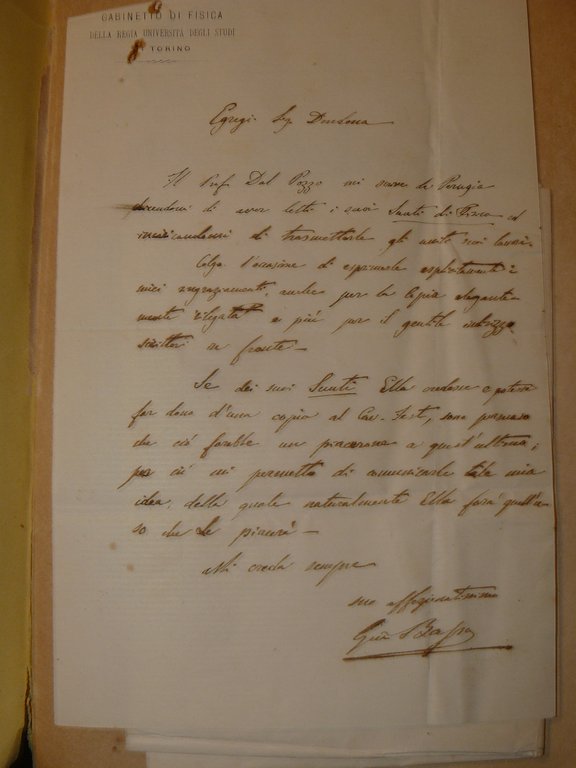 GABINETTO DI FISICA
DELLA REGIA UNIVERSITÀ DEGLI STUDI
TORINO
Egregi Sig.
Il Prof. Dal Pozzo mi scrive da Perugia
di aver letti i suoi Sunti di Fisica ed
di trasmetterle gli uniti suoi lavori.
Colgo l'occasione di esprimerle esplicitamente i
miei ringraziamenti, anche per la Copia elegante-
mente rilegata e più per il gentile indirizzo
in fronte -
Se dei suoi Sunti Ella credesse e potesse
far dono d'una copia al Cav. Fest, sono persuaso
che ciò farebbe un piacerone a quest'ultimo;
per ciò mi permetto di comunicarle tale mia
idea, della quale naturalmente Ella farà quell'u-
so che Le piacerà -
Mi creda sempre
suo affezionatissimo